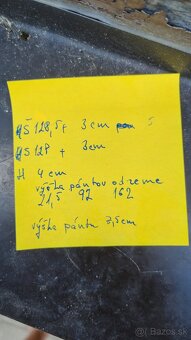 HŠ 128,5+ 3cm
HS 128 + 3cm
H 4 cm
výška pántov od zeme
21,5 92 162
výška pántu 7,5cm
bazar.sk